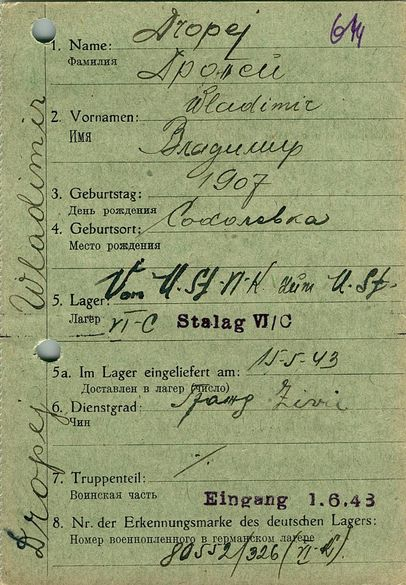 614
Dropej
1. Name:
Фамилия
Дропей
Wladimir
2. Vornamen:
Имя
Владимир
1907
3. Geburtstag:
День рождения
Соколовка
4. Geburtsort:
Место рождения
Von M.St. VI-K zum M.St.
5. Lager:
Лагерь VI-C Stalag VI/C
15-5-43
5a. Im Lager eingeliefert am:
Доставлен в лагер (число)
6. Dienstgrad: Zivil
Чин
7. Truppenteil: %
Воинская часть
Eingang 1.6.43
8. Nr. der Erkennungsmarke des deutschen Lagers:
Номер военнопленного в германском лагере
80552/326/(VI-K)
Dropej Wladimir